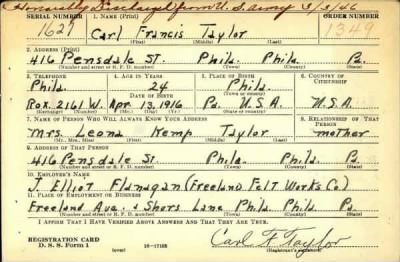 Honorably Discharged from U.S. Army 3/3/46
SERIAL NUMBER 1. NAME (Print) ORDER NUMBER
1627 Carl Francis Taylor 1349
(First) (Middle) (Last)
2. ADDRESS (Print)
416 Pensdale ST. Phila. Phila. Pa.
(Number and street or R. F. D. number) (Town) (County) (State)
3. TELEPHONE 4. AGE IN YEARS 5. PLACE OF BIRTH 6. COUNTRY OF CITIZENSHIP
Phila. 24 Phila.
DATE OF BIRTH (Town or county)
Rox. 2161 W. Apr. 13, 1916 Pa. U.S.A. U.S.A.
(Exchange) (Number) (Mo.) (Day) (Yr.) (State or country)
7. NAME OF PERSON WHO WILL ALWAYS KNOW YOUR ADDRESS 8. RELATIONSHIP OF THAT PERSON
Mrs. Leona Kemp Taylor mother
(Mr., Mrs., Miss) (First) (Middle) (Last)
9. ADDRESS OF THAT PERSON
416 Pensdale St. Phila. Phila. Pa.
(Number and street or R. F. D. number) (Town) (County) (State)
10. EMPLOYER'S NAME
J. Elliot Flanagan (Freeland Felt Works Co)
11. PLACE OF EMPLOYMENT OR BUSINESS
Freeland Ave. & Shurs Lane Phila. Phila. Pa
(Number and street or R. F. D. number) (Town) (County) (State)
I AFFIRM THAT I HAVE VERIFIED ABOVE ANSWERS AND THAT THEY ARE TRUE.
REGISTRATION CARD
D. S. S. Form 1 (over) 16-17105 Carl F Taylor
(Registrant's signature)